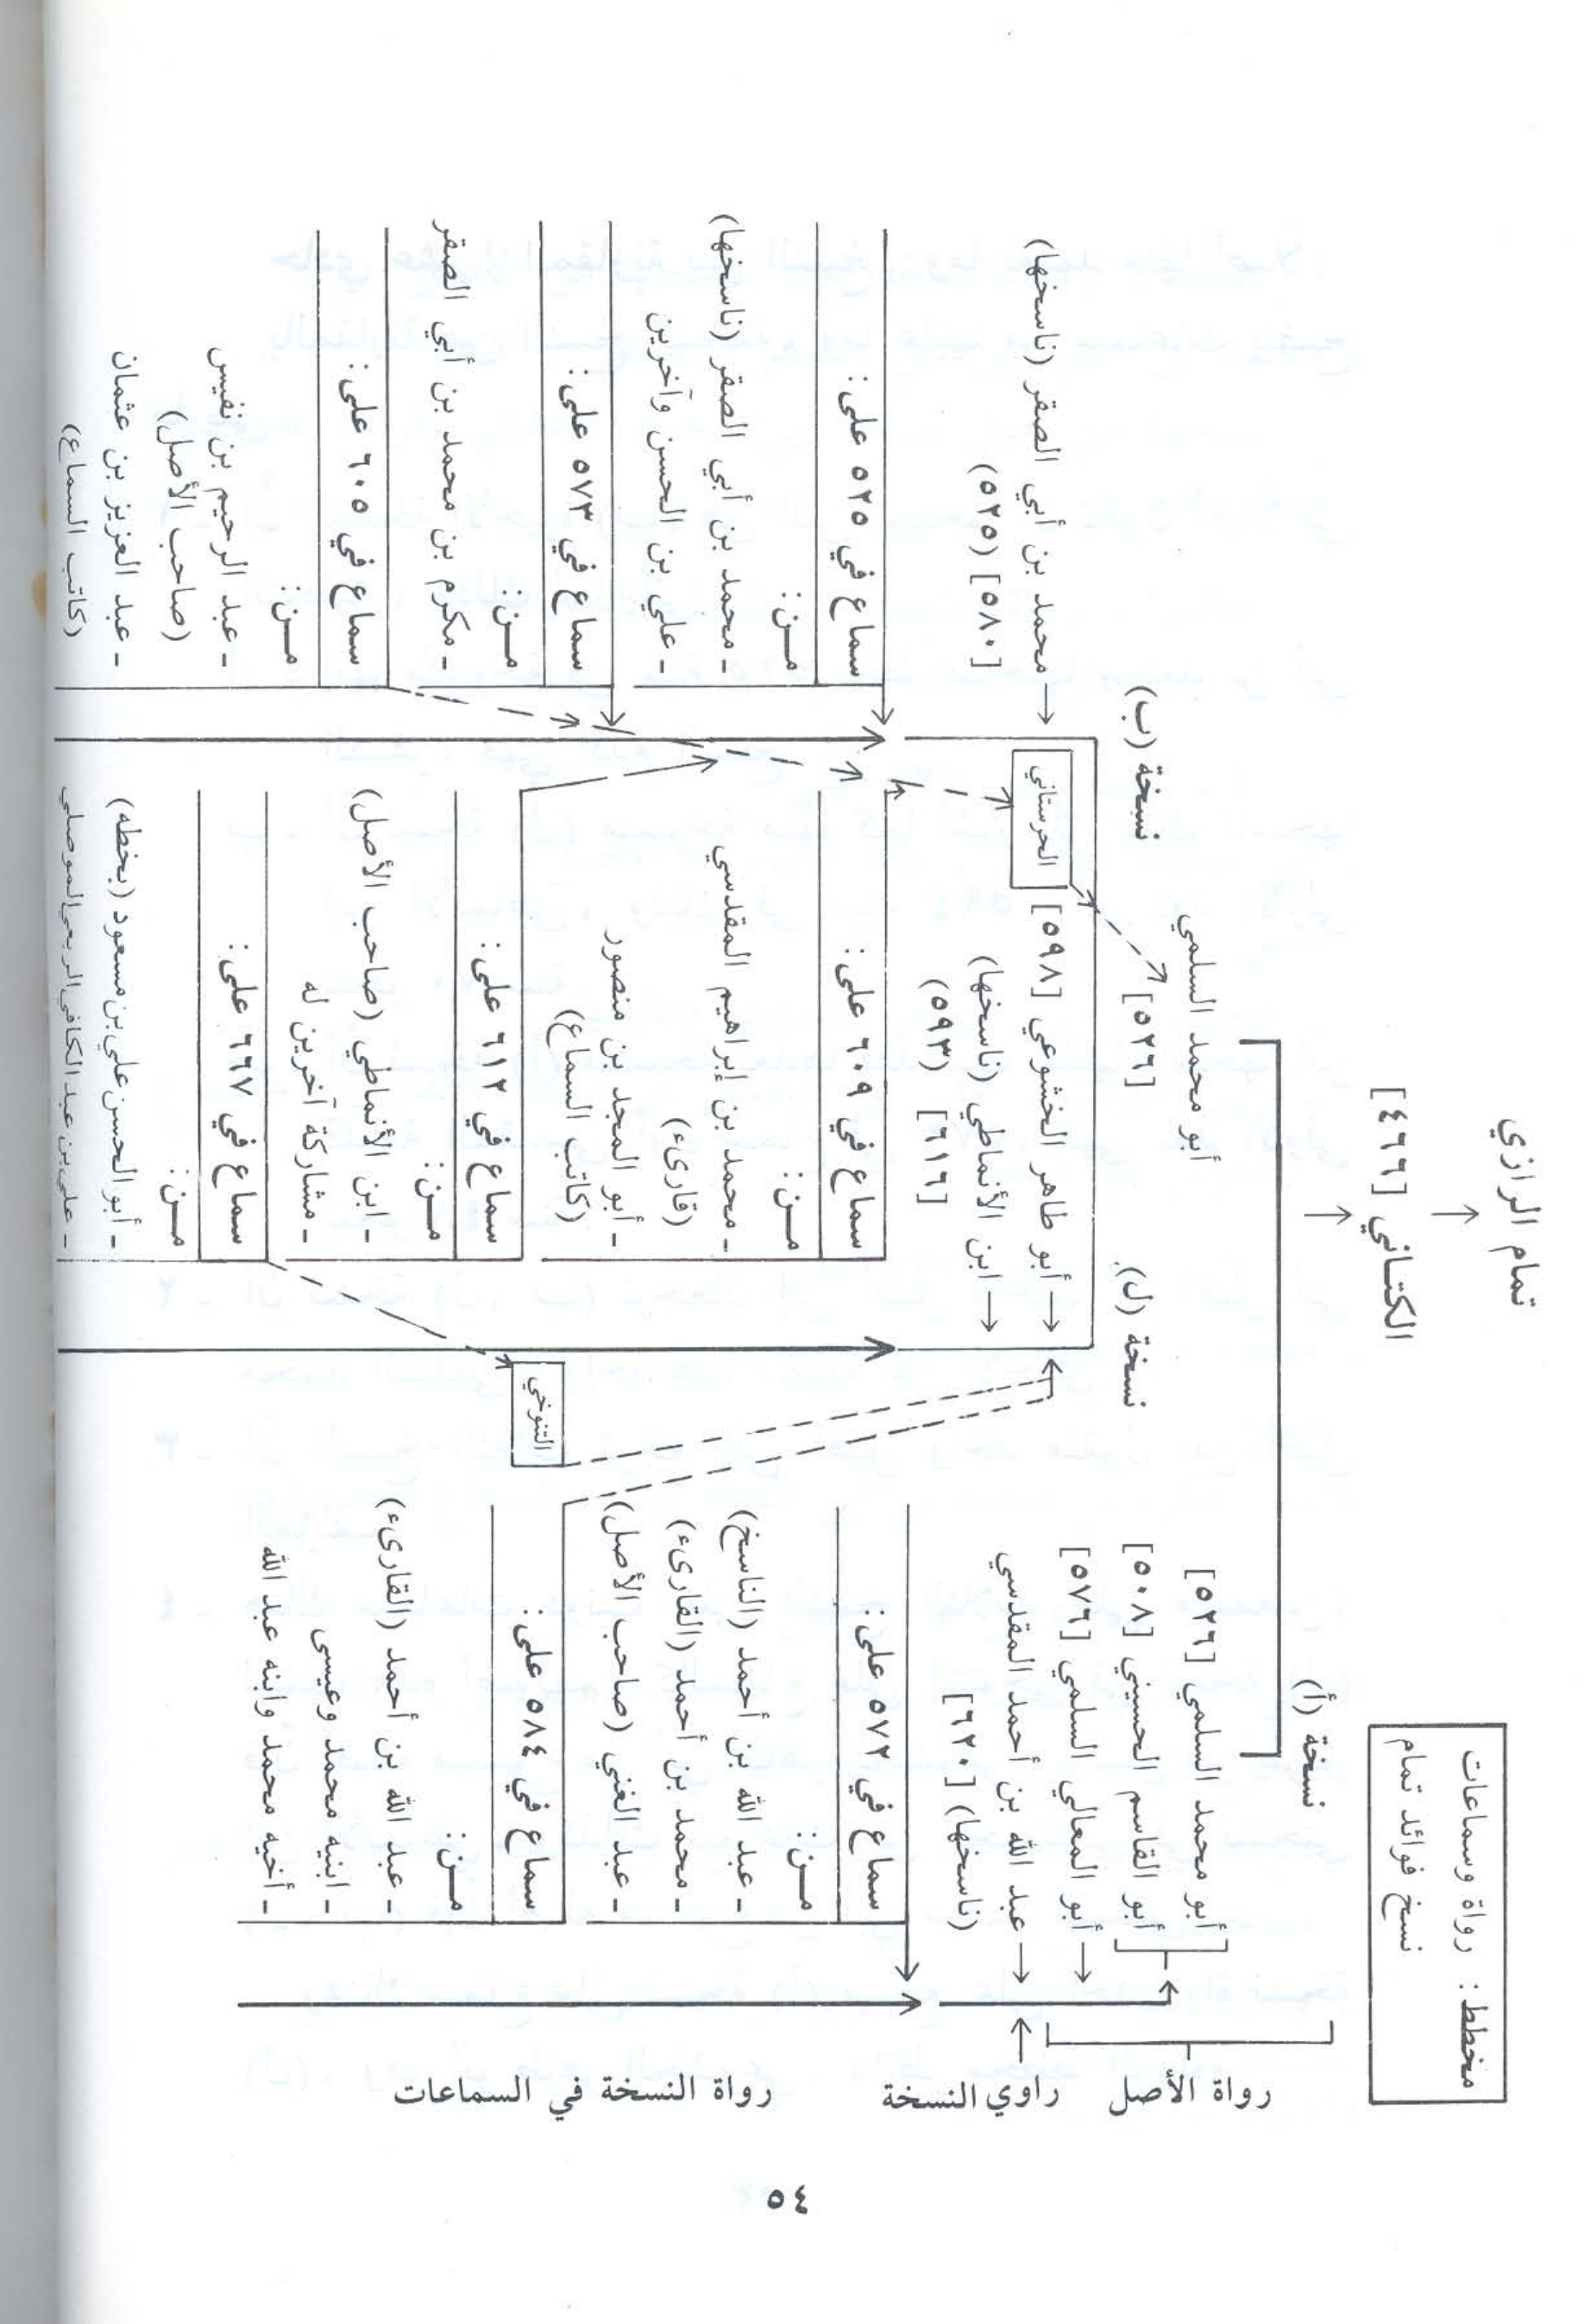 مخطط: رواة وسماعات
نسخ فوائد تمام
تمام الرازي
الكتاني [٤٦٦]
رواة الأصل
راوي النسخة
رواة النسخة في السماعات
نسخة (أ)
أبو محمد السلمي [٥٢٦]
أبو القاسم الحسيني [٥٠٨]
أبو المعالي السلمي [٥٧٦]
عبد الله بن أحمد المقدسي
(ناسخها) [٦٢٠]
سماع في ٥٧٢ على:
مـن:
ـ عبد الله بن أحمد (الناسخ)
ـ محمد بن أحمد (القارىء)
ـ عبد الغني (صاحب الأصل)
سماع في ٥٨٤ على:
مـن:
ـ عبد الله بن أحمد (القارىء)
ـ ابنيه محمد وعيسى
ـ أخيه محمد وابنه عبد الله
أبو محمد السلمي
[٥٢٦]
نسخة (ل)
أبو طاهر الخشوعي [٥٩٨]
ابن الأنماطي (ناسخها)
(٥٩٣) [٦١٦]
الحرستاني
سماع في ٦٠٩ على:
مـن:
ـ محمد بن إبراهيم المقدسي
(قارىء)
ـ أبو المجد بن منصور
(كاتب السماع)
سماع في ٦١٢ على:
مـن:
ـ ابن الأنماطي (صاحب الأصل)
ـ مشاركة آخرين له
سماع في ٦٦٧ على:
مـن:
ـ أبو الحسن علي بن مسعود (بخطه)
ـ علي بن عبد الكافي الربعي الموصلي
التنوخي
نسخة (ب)
محمد بن أبي الصقر (ناسخها)
(٥٢٥) [٥٨٠]
سماع في ٥٢٥ على:
مـن:
ـ محمد بن أبي الصقر (ناسخها)
ـ علي بن الحسن وآخرين
سماع في ٥٧٣ على:
مـن:
ـ مكرم بن محمد بن أبي الصقر
سماع في ٦٠٥ على:
مـن:
ـ عبد الرحيم بن نفيس
(صاحب الأصل)
ـ عبد العزيز بن عثمان
(كاتب السماع)
٥٤